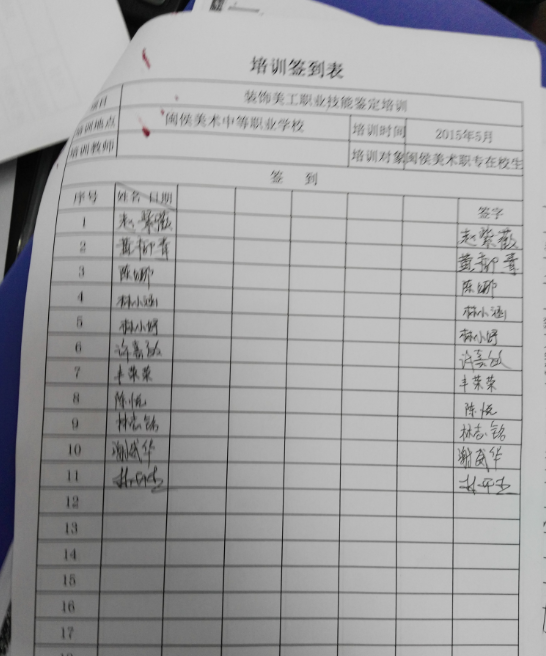 培训签到表
项目 装饰美工职业技能鉴定培训
培训地点 闽侯美术中等职业学校 培训时间 2015年5月
培训教师 培训对象 闽侯美术职专在校生
签 到
序号 姓名 日期 签字
1 赵紫薇 赵紫薇
2
3 陈娜 陈娜
4 林小涵 林小涵
5 林小妤 林小妤
6
7 丰荣荣 丰荣荣
8 陈悦 陈悦
9 林志铭 林志铭
10 谢武华 谢武华
11
12
13
14
15
16
17